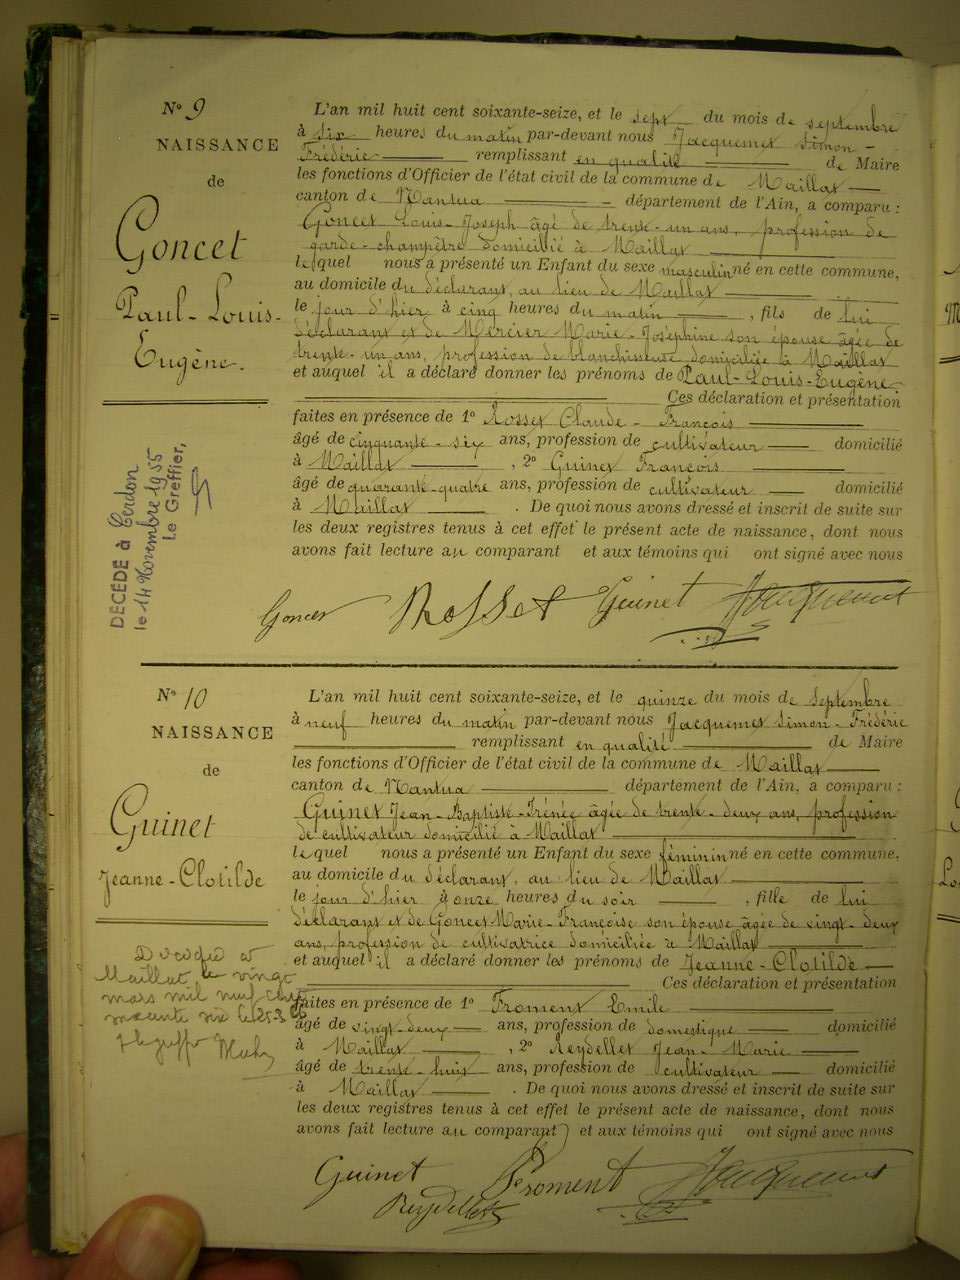 N° 9
NAISSANCE
de
Goncet
Paul-Louis-
Eugène.
L'an mil huit cent soixante-seize, et le sept du mois de septembre
à six heures du matin par-devant nous Jacquemet Simon-
Frédéric remplissant en qualité de Maire
les fonctions d'Officier de l'état civil de la commune de Maillat
canton de Nantua département de l'Ain, a comparu :
Goncet Louis-Joseph âgé de trente-un ans, profession de
garde-champêtre domicilié à Maillat
lequel nous a présenté un Enfant du sexe masculin né en cette commune,
au domicile du déclarant, au lieu de Maillat
le jour d'hier à cinq heures du matin, fils de lui
déclarant et de Mercier Marie-Joséphine son épouse âgée de
trente-un ans, profession de blanchisseuse domiciliée à Maillat
et auquel il a déclaré donner les prénoms de Paul-Louis-Eugène
Ces déclaration et présentation
faites en présence de 1° Rosset Claude-François
âgé de cinquante-six ans, profession de cultivateur domicilié
à Maillat, 2° Guinet François
âgé de quarante-quatre ans, profession de cultivateur domicilié
à Maillat. De quoi nous avons dressé et inscrit de suite sur
les deux registres tenus à cet effet le présent acte de naissance, dont nous
avons fait lecture au comparant et aux témoins qui ont signé avec nous
DÉCÉDÉ à Cerdon
le 14 Novembre 1955
Le Greffier,
Goncet Rosset Guinet Jacquemet
N° 10
NAISSANCE
de
Guinet
Jeanne-Clotilde
L'an mil huit cent soixante-seize, et le quinze du mois de septembre
à neuf heures du matin par-devant nous Jacquemet Simon-Frédéric
remplissant en qualité de Maire
les fonctions d'Officier de l'état civil de la commune de Maillat
canton de Nantua département de l'Ain, a comparu :
Guinet Jean-Baptiste-Irénée âgée de trente-deux ans, profession
de cultivateur domicilié à Maillat
lequel nous a présenté un Enfant du sexe féminin né en cette commune,
au domicile du déclarant, au lieu de Maillat
le jour d'hier à onze heures du soir, fille de lui
déclarant et de Goncet Marie-Françoise son épouse âgée de vingt-deux
ans, profession de cultivatrice domiciliée à Maillat
et auquel il a déclaré donner les prénoms de Jeanne-Clotilde
Ces déclaration et présentation
faites en présence de 1° Froment Emile
âgé de vingt-deux ans, profession de domestique domicilié
à Maillat, 2° Reydellet Jean-Marie
âgé de trente-huit ans, profession de cultivateur domicilié
à Maillat. De quoi nous avons dressé et inscrit de suite sur
les deux registres tenus à cet effet le présent acte de naissance, dont nous
avons fait lecture au comparant et aux témoins qui ont signé avec nous
Décédée à
Maillat le vingt
mars mil neuf cent
soixante six le 25-3-66
Guinet Froment Jacquemet
Reydellet